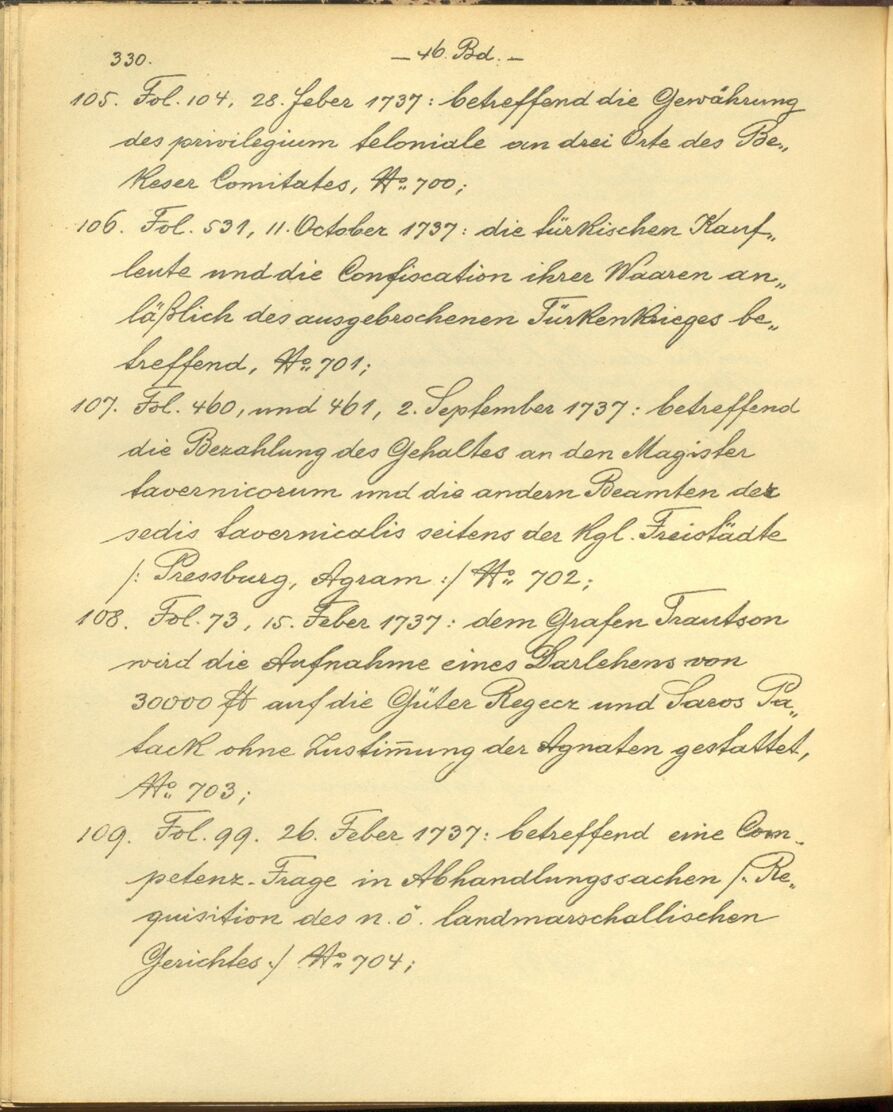 330.
– 46. Bd. –
105. Fol. 104, 28. Feber 1737: betreffend die Gewährung
des privilegium teloniale an drei Orte des Be„
keser Comitates, No. 700;
106. Fol. 531, 11. October 1737: die türkischen Kauf„
leute und die Confiscation ihrer Waaren an„
läßlich des ausgebrochenen Türkenkrieges be„
treffend, No. 701;
107. Fol. 460, und 461, 2. September 1737: betreffend
die Bezahlung des Gehaltes an den Magister
tavernicorum und die andern Beamten der
sedis tavernicalis seitens der kgl. Freistädte
/: Pressburg, Agram :/ No. 702;
108. Fol. 73, 15. Feber 1737: dem Grafen Trautson
wird die Aufnahme eines Darlehens von
30000 ft auf die Güter Regecz und Saros Pa„
tack ohne Zustim̄ung der Agnaten gestattet,
No. 703;
109. Fol. 99. 26. Feber 1737: betreffend eine Com„
petenz-Frage in Abhandlungssachen /: Re„
quisition des n. ö. landmarschallischen
Gerichtes :/ No. 704;